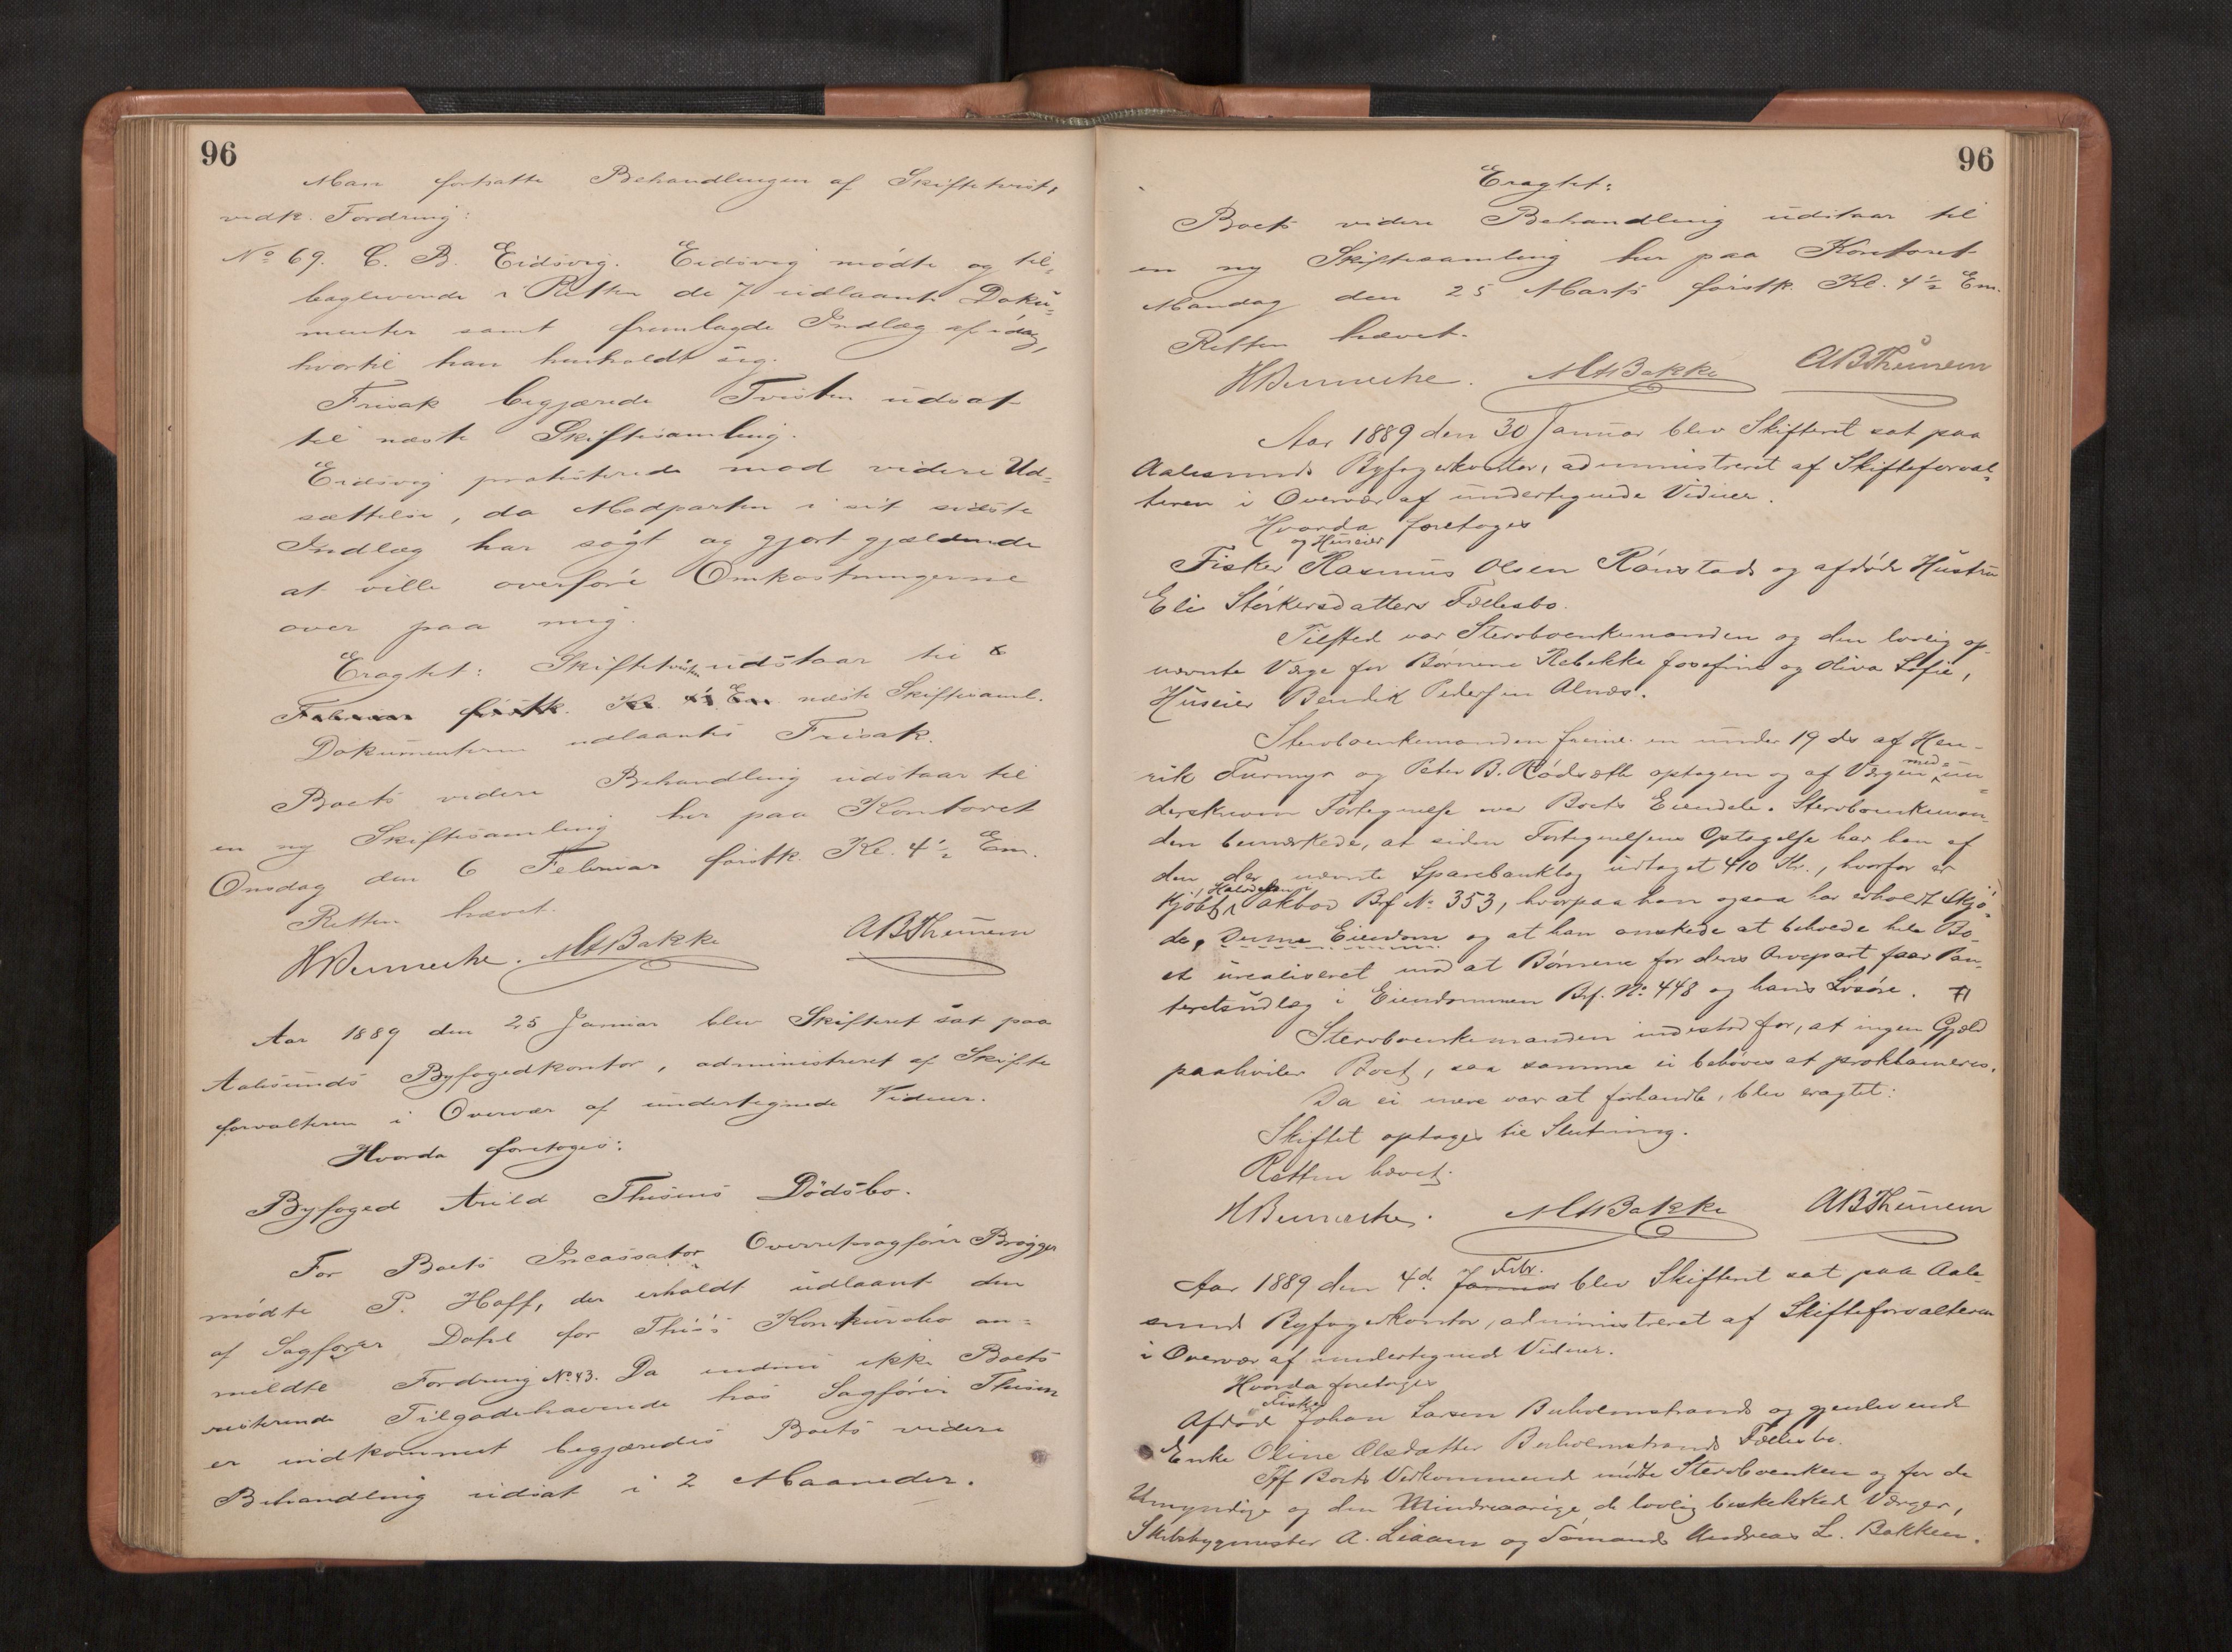 96
Man fortsatte Behandlingen af Skiftetvist,
vedk. Fordring:
No 69. C. B. Eidsvig. Eidsvig mødte og til-
bagleverede i Retten de 7 udlaante Doku-
menter samt fremlagde Indlæg af idag,
hvortil han henholdt sig.
Frisak begjærede Tvisten udsat
til næste Skiftesamling.
Eidsvig protesterede mod videre Ud-
sættelse, da Modparten i sit sidste
Indlæg har søgt og gjort gjældende
at ville overføre Omkostningerne
over paa mig.
Eragtet: Skiftetvisten udstaar til 6
Februar førstk. Kl. Em. næste Skiftesaml.
Dokumenterne udlaantes Frisak.
Boets videre Behandling udstaar til
en ny Skiftesamling her paa Kontoret
Onsdag den 6 Februar førstk. Kl. 4 ½ Em.
Retten hævet.
MABakke ABThunem
Aar 1889 den 25 Januar blev Skifteret sat paa
Aalesunds Byfogedkontor, administreret af Skifte
forvalteren i Overvær af undertegnede Vidner.
Hvorda foretoges:
Byfoged Arild Thesens Dødsbo.
For Boets Incassator Overretssagfører Brøgger
mødte P. Hoff, der erholdt udlaant den
af Sagfører Dahl for Konkursbo an-
meldte Fordring No 43. Da endnu ikke Boets
resterende Tilgodehavende hos Sagfører Thesen
er indkommet begjæredes Boets videre
Behandling udsat i 2 Maaneder.
96
Eragtet:
Boets videre Behandling udstaar til
en ny Skiftesamling her paa Kontoret
Mandag den 25 Marts førstk. Kl. 4 ½ Em.
Retten hævet.
MABakke ABThunem
Aar 1889 den 30 Januar blev Skifteret sat paa
Aalesunds Byfogedkontor, administreret af Skifteforval-
teren i Overvær af undertegnede Vidner.
Hvorda foretoges
og Huseier
Fisker Rasmus Olsen Rønstads og afdøde Hustru
Eli Størkersdatters Fællesbo.
Tilsted var Stervboenkemanden og den lovlig op-
nævnte Værge for Børnene Rebekka Josefine og Oliva Sofie,
Huseier Bendik Pedersen Alnæs.
Stervboenkemanden freml. en under 19 ds af Hen-
rik Furmyr og Peter B. Rødsæth optagen og af Værgen med un-
derskreven Fortegnelse over Boets Eiendele. Stervboenkeman-
den bemærkede, at siden Fortegnelsens Optagelse har han af
den der nævnte Sparebankbog udtaget 410 Kr., hvorfor er
kjøbt Halvdelen i Brf No 353, hvorpaa han ogsaa har erholdt Skjø-
de, Denne Eiendom og at han ønskede at beholde hele Bo-
et urealiseret mod at Børnene for deres Arvepart faar Pan-
teretsudlæg i Eiendommen Brf. No 448 og hans Løsøre.
Stervboenkemanden indestod for, at ingen Gjæld
paahviler Boet, saa samme ei behøves at proklameres.
Da ei mere var at forhandle, blev eragtet:
Skiftet optages til Slutning.
Retten hævet.
MABakke ABThunem
Aar 1889 den 4d Januar Febr. blev Skifteret sat paa Aale-
sunds Byfogedkontor, administreret af Skifteforvalteren
i Overvær af undertegnede Vidner.
Hvorda foretoges
Afdøde Fisker Johan Larsen Buholmstrands og gjenlevende
Enke Oline Olsdatter Buholmstrands Fællesbo.
Boets Vedkommende mødte Stervboenken og for de
Umyndige og den Mindreaarige de lovlig beskikkede Værger,
Skibsbygmester A. Liaaen og Sømand Andreas L. Bakken.